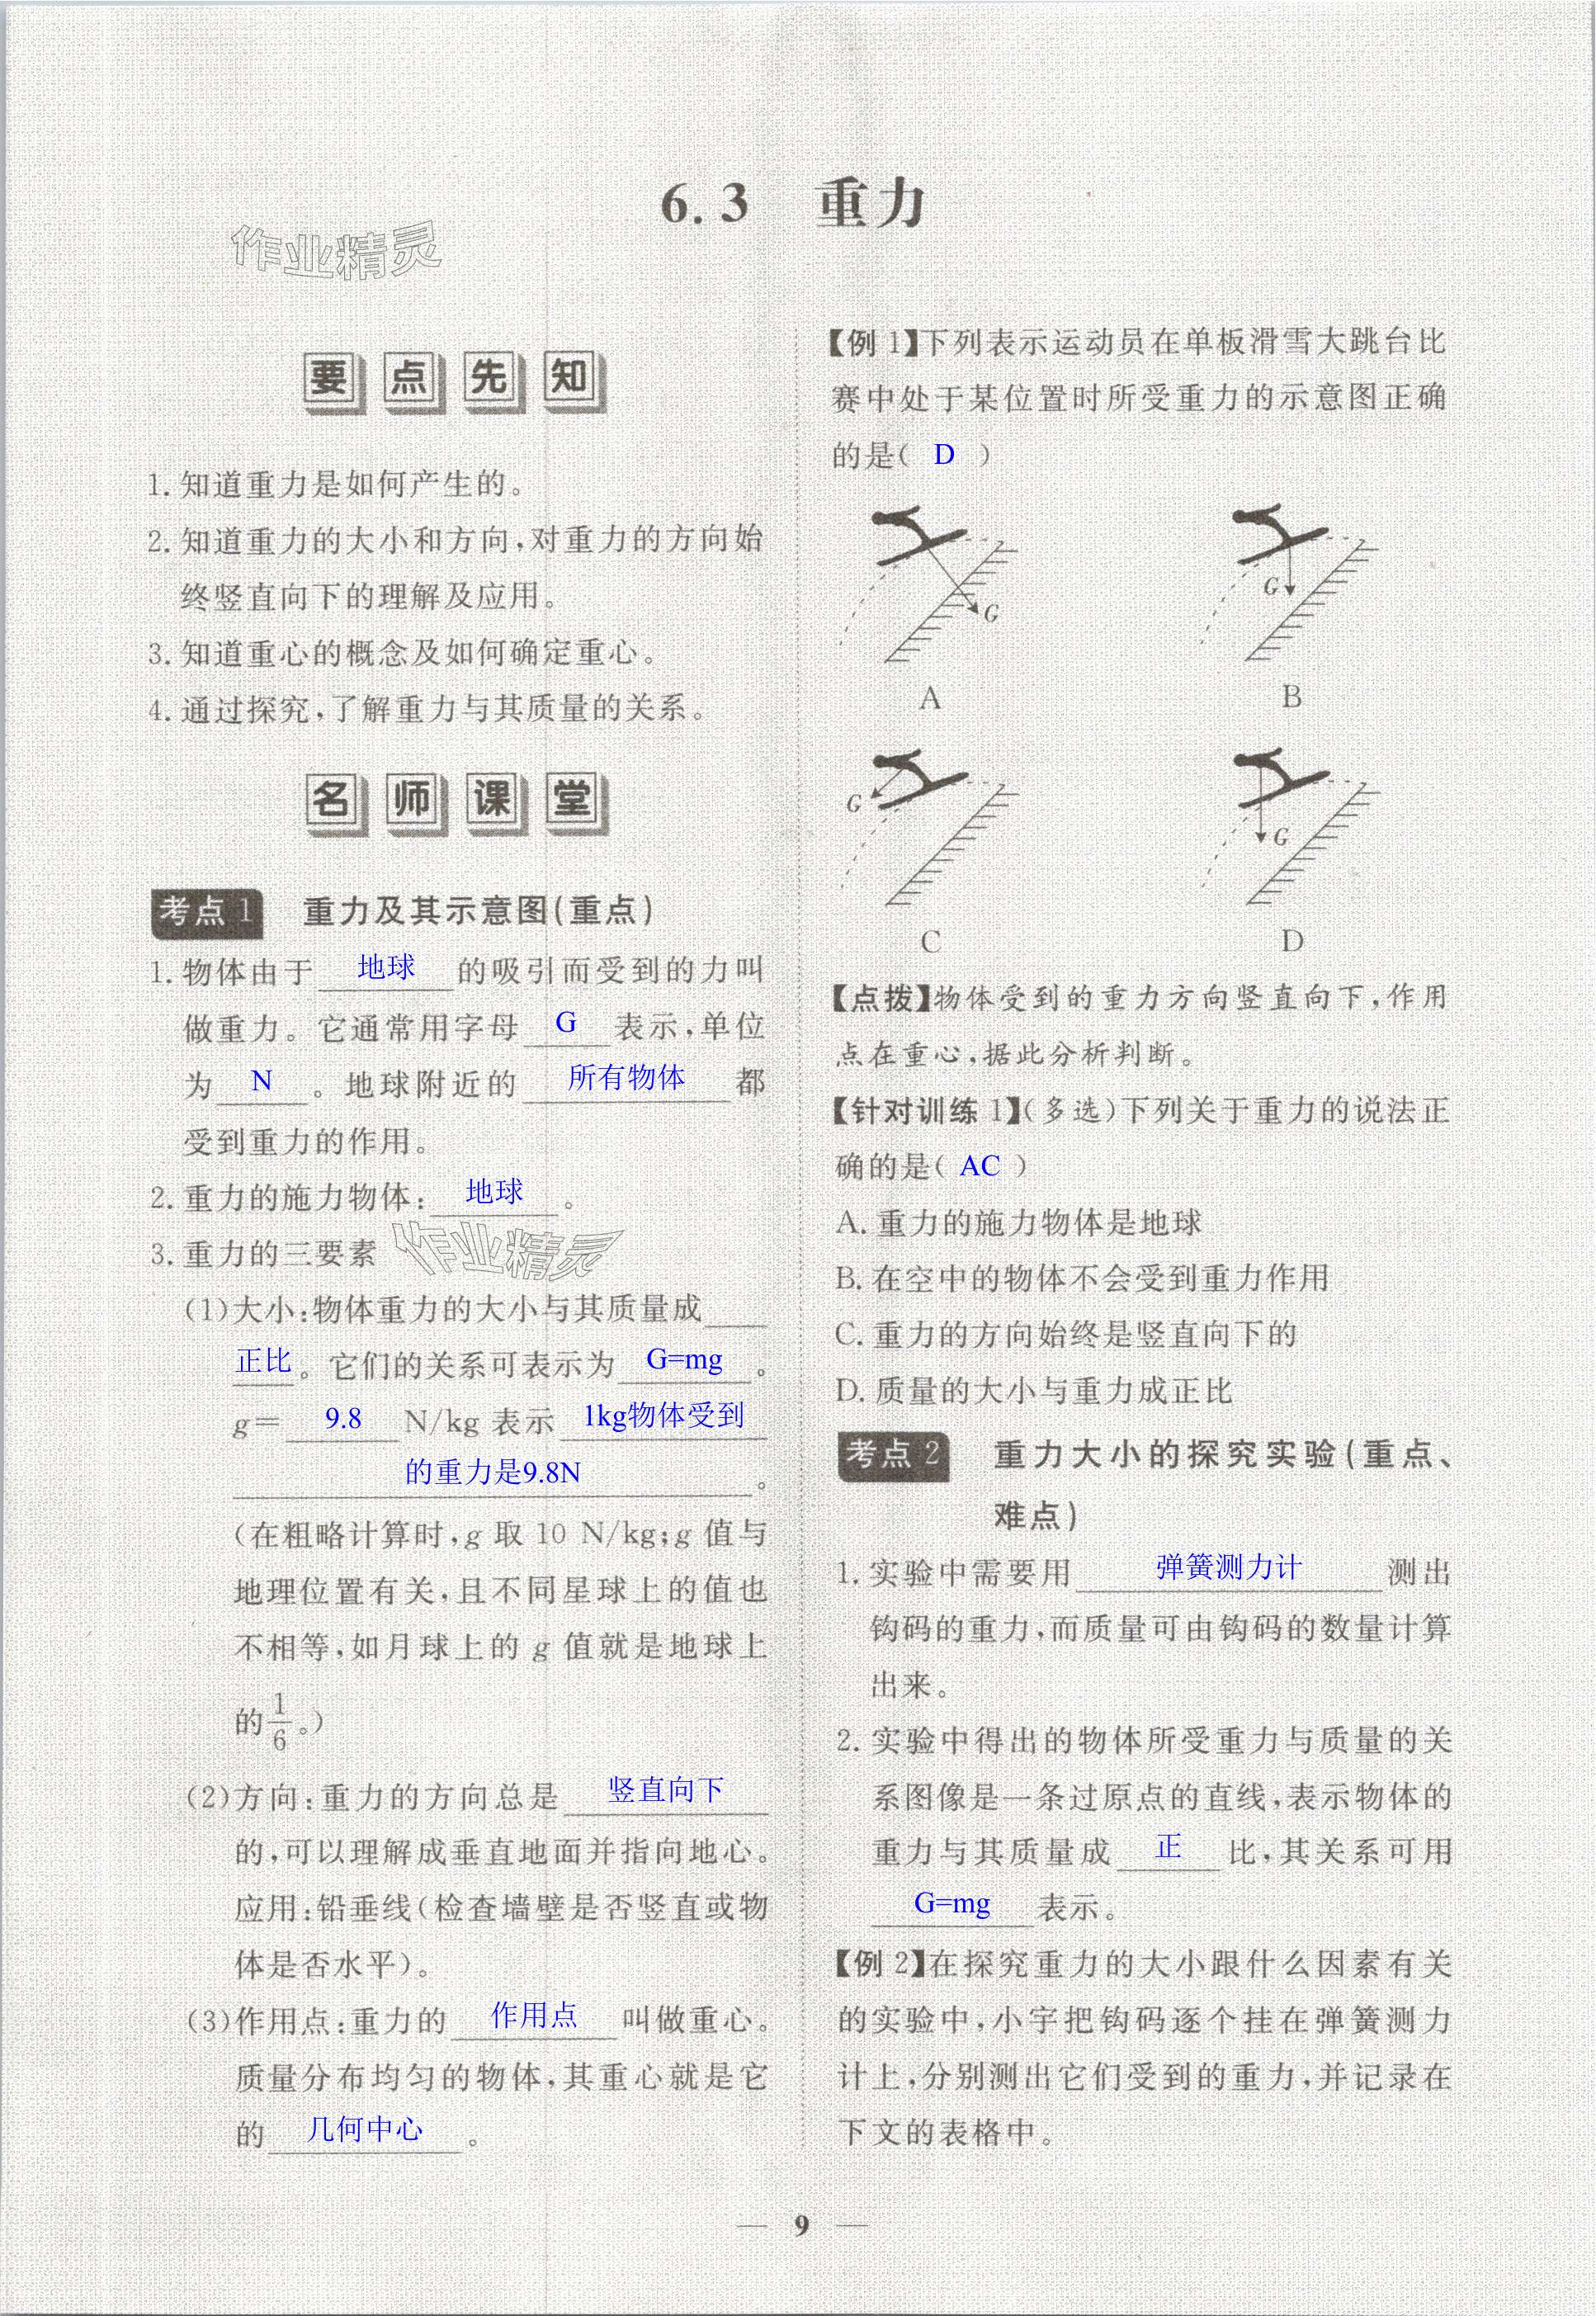 6.3 重力
作业精灵
要点先知
1. 知道重力是如何产生的。
2. 知道重力的大小和方向,对重力的方向始
终竖直向下的理解及应用。
3. 知道重心的概念及如何确定重心。
4. 通过探究,了解重力与其质量的关系。
名师课堂
考点1 重力及其示意图(重点)
1. 物体由于 地球 的吸引而受到的力叫
做重力。它通常用字母 G 表示,单位
为 N 。地球附近的 所有物体 都
受到重力的作用。
2. 重力的施力物体: 地球 。
3. 重力的三要素
作业精灵
(1)大小:物体重力的大小与其质量成
正比 。它们的关系可表示为 G=mg 。
g= 9.8 N/kg 表示 1kg物体受到
的重力是9.8N 。
(在粗略计算时,g 取 10 N/kg;g 值与
地理位置有关,且不同星球上的值也
不相等,如月球上的 g 值就是地球上
的1/6。)
(2)方向:重力的方向总是 竖直向下
的,可以理解成垂直地面并指向地心。
应用:铅垂线(检查墙壁是否竖直或物
体是否水平)。
(3)作用点:重力的 作用点 叫做重心。
质量分布均匀的物体,其重心就是它
的 几何中心 。
【例 1】下列表示运动员在单板滑雪大跳台比
赛中处于某位置时所受重力的示意图正确
的是( D )
G
G
A
B
G
G
C
D
【点拨】物体受到的重力方向竖直向下,作用
点在重心,据此分析判断。
【针对训练 1】(多选)下列关于重力的说法正
确的是( AC )
A. 重力的施力物体是地球
B. 在空中的物体不会受到重力作用
C. 重力的方向始终是竖直向下的
D. 质量的大小与重力成正比
考点2 重力大小的探究实验(重点、
难点)
1. 实验中需要用 弹簧测力计 测出
钩码的重力,而质量可由钩码的数量计算
出来。
2. 实验中得出的物体所受重力与质量的关
系图像是一条过原点的直线,表示物体的
重力与其质量成 正 比,其关系可用
G=mg 表示。
【例 2】在探究重力的大小跟什么因素有关
的实验中,小宇把钩码逐个挂在弹簧测力
计上,分别测出它们受到的重力,并记录在
下文的表格中。
— 9 —